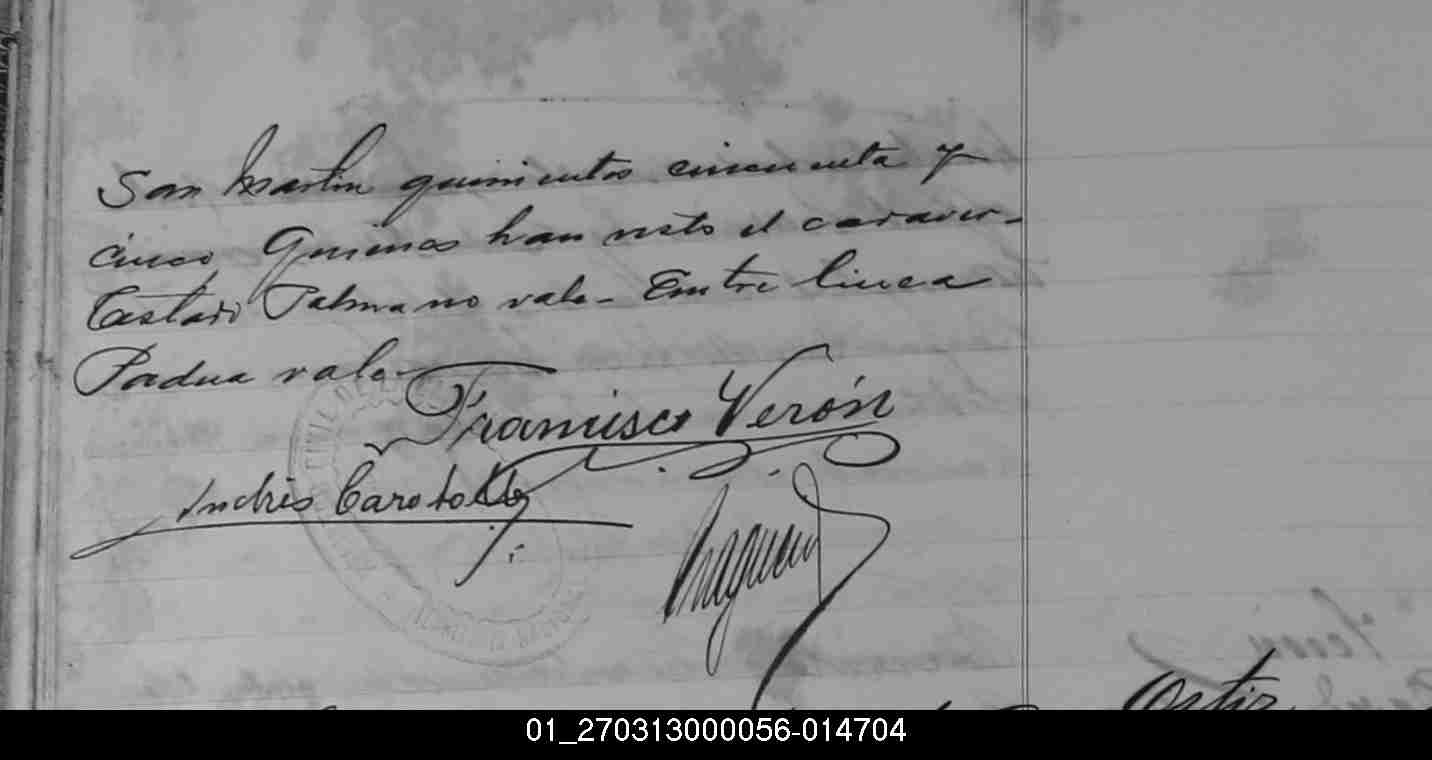 San Martin quinientos cincuenta y
cinco Quienes han visto el cadaver-
Testado Palma no vale- Entre linea
Padua vale-
Francisco Verón
Andrés
CIVIL DE
Ortiz
01_270313000056-014704